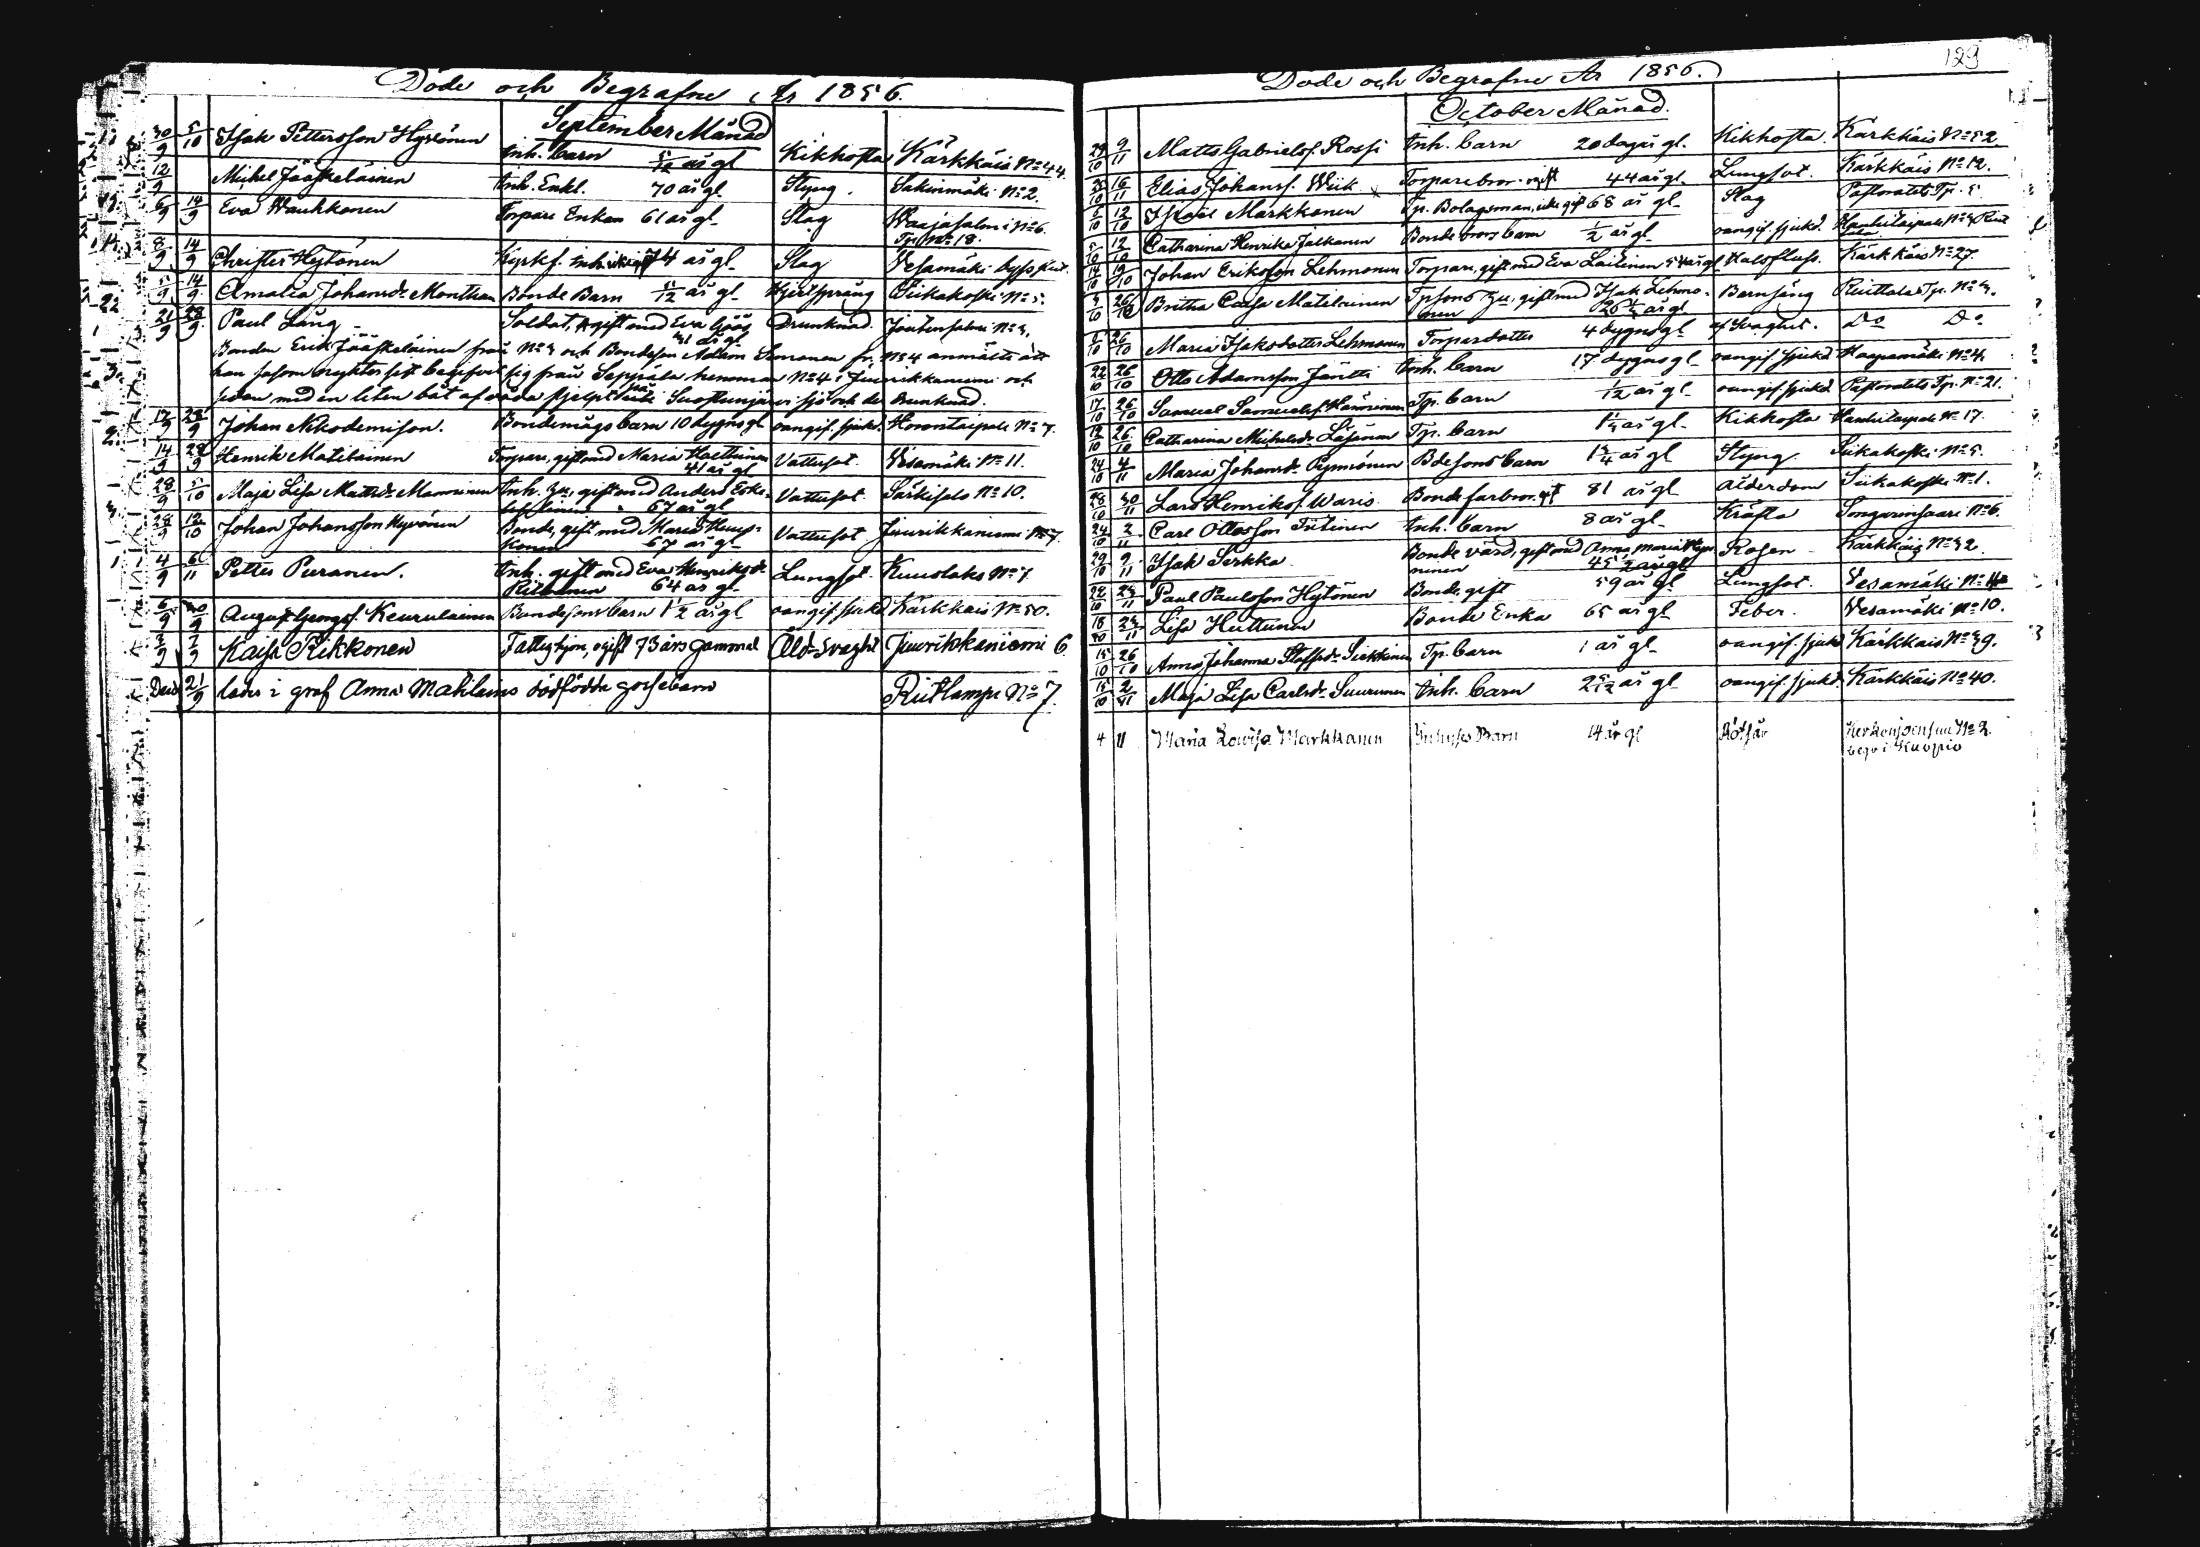 Döde och Begrafne År 1856.
September Månad
30/9 5/10 Isak Pettersson Hyvönen Inh. barn 5/12 år gl Kikhosta Kärkkäis No 44.
12/9 Michel Jääskeläinen Inh. Enkl. 70 år gl Styng. Sakinmäki No 2.
6/9 14/9 Eva Wauhkonen Torpare Enkan 61 år gl Slag Waajasalmi No 6.
Tp. No 18.
8/9 14/9 Christer Hytönen Kyrkf. Inh. 74 år gl Slag Vesamäki
14/9 Amalia Johansdr Monthan Bonde Barn år gl Hjertsprång Siikakoski No 5.
21/9 28/9 Paul Lång Soldat, gift med Eva Göös Drunknad. Joutsensalmi No 3.
41 år gl
Bonden Erik Jääskeläinen från No 3 och Bondeson Adam Simonen fr. No 4 anmälte att
han såsom nykter sitt begifvit sig från Seppälä hemman No 4 i Juurikkaniemi och
sedan med en liten båt af våda stjelpt sjö och der drunknad.
17/9 28/9 Johan Nikodemison. Bondemågs barn 10 dygns gl oangif. sjukd. Horontaipale No 7.
14/9 28/9 Henrik Matilainen Torpare, gift med Maria Haettinen Vattusot. Vesamäki No 11.
41 år gl
28/9 5/10 Maja Lisa Mattsdr Manninen Inh. hu, gift med Anders Eske- Vattusot. Särkisalo No 10.
67 år gl
28/9 12/10 Johan Johansson Hyvönen Bonde, gift med Maria Kaup- Vattusot Juurikkaniemi No 7.
konen 67 år gl
4/9 6/11 Petter Puranen. Inh. gift med Eva Henriksdr Lungsot. Kuuslaks No 7
64 år gl
6/9 August Georgs. Keurulainen Bondesons barn 1 1/2 år gl oangif. sjukd Kärkkäis No 50.
7/9 Kaisa Rikkonen Fattighjon, ogift 73 års gammal Åld. Svaght Juurikkaniemi 6
21/9 lades i graf Anna Mahlanes dödfödda gossebarn Riitlampi No 7.
129
Döde och Begrafne År 1856.
October Månad.
29/10 9/11 Matts Gabrielss. Rossi Inh. barn 20 dagar gl. Kikhosta. Kärkkäis No 52
16/11 Elias Johanss. Wiik Torparebror. ogift 44 år gl. Lungsot. Kärkkäis No 12.
12/10 Markkanen Tp. Bolagsman, enkl gift 68 år gl Slag Pastoratets Tp. 5.
5/10 12/10 Catharina Henrika Jalkanen Bonde brors barn 1/2 år gl oangif. sjukd. Hankataipale
14/10 19/10 Johan Eriksson Lehmonen Torpare, gift med Eva Laitinen 54 år gl Halsfluss. Kärkkäis No 27.
26/10 Britha Caisa Matilainen Tpsons hu, gift med Isak Lehmo- Barnsäng Riuttala Tp. No 3.
nen 26 1/2 år gl
6/10 26/10 Maria Isaksdotter Lehmonen Torpardotter 4 dygns gl af Svaghet. Do Do
22/10 26/10 Otto Adamsson Jäntti Inh. barn 17 dygns gl oangif. sjukd Haapamäki No 4.
17/10 26/10 Samuel Samuelss. Hänninen Tp. barn 1/12 år gl oangif. sjukd. Pastoratets Tp. No 21.
19/10 26/10 Catharina Michelsdr Läsänen Tp. barn 1 1/4 år gl Kikhosta Hankataipale No 17.
24/10 4/11 Maria Johansdr Pynnönen Bdesons barn år gl Styng Siikakoski No 5.
28/10 30/11 Lars Henrikss. Waris Bonde farbror. gift 81 år gl Ålderdom Siikakoski No 1.
24/10 2/11 Carl Ottosson Titinen Inh. barn 8 år gl Kräfta Songarinsaari No 6.
29/10 9/11 Isak Serkka Bonde värd, gift med Anna Maria Rosen Kärkkäis No 32
ninen 45 1/2 år gl
22/10 23/11 Paul Paulsson Hytönen Bonde gift 59 år gl Lungsot. Vesamäki
18/10 23/11 Lisa Huttunen Bonde Enka 65 år gl Feber. Vesamäki No 10.
15/10 26/10 Anna Johanna Staffsdr Siekkinen Tp. barn 1 år gl oangif. sjukd Kärkkäis No 39.
15/10 2/11 Maja Lisa Carlsdr Suurunen Inh. barn 2 5/12 år gl oangif. sjukd. Kärkkäis No 40.
4 11 Maria Lowisa Markkanen Barn 14 år gl Rötsår No 2.
begr i Kuopio